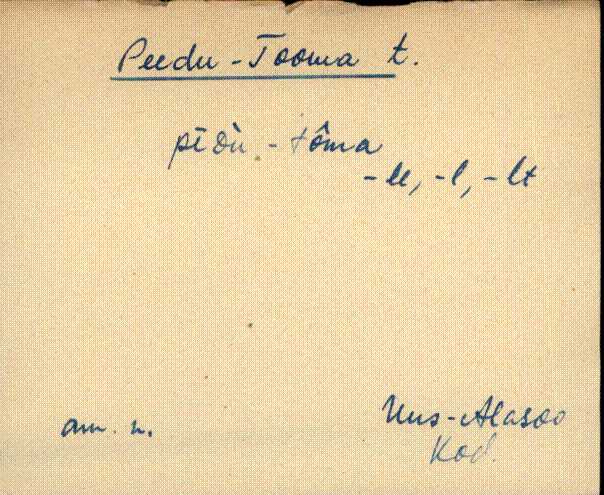 Peedu-Tooma t.
pīδù-tôma
-le, -l, -lt
am. n.
Uus-Alasoo
Kod.